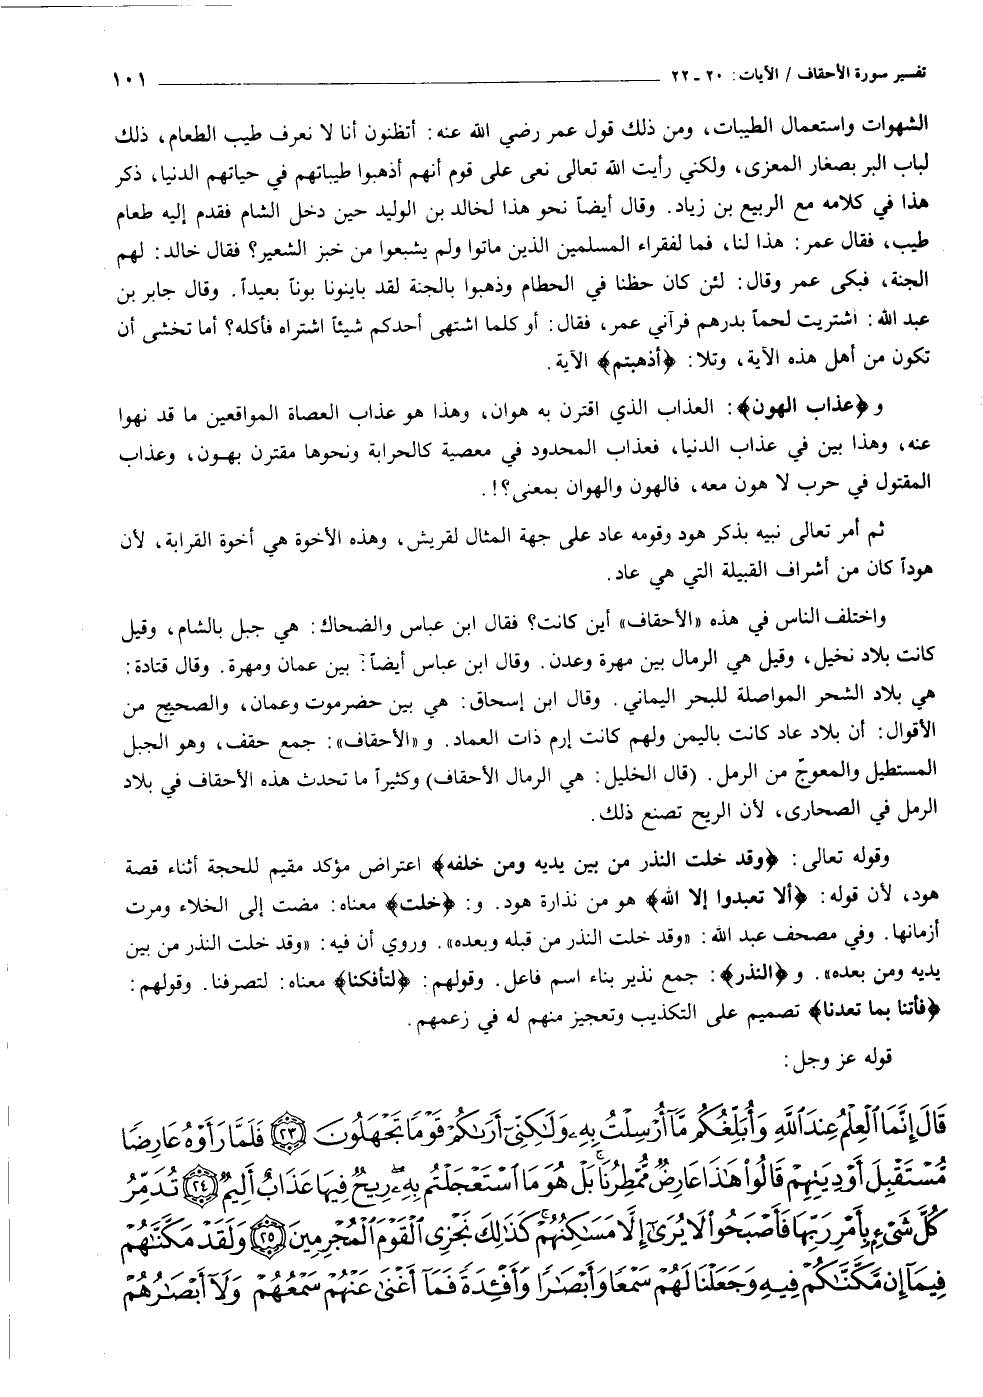 تفسير سورة الأحقاف / الآيات: ٢٠ ـ ٢٢ ١٠١
الشهوات واستعمال الطيبات، ومن ذلك قول عمر رضي الله عنه: أتظنون أنا لا نعرف طيب الطعام، ذلك
لباب البر بصغار المعزى، ولكني رأيت الله تعالى نعى على قوم أنهم أذهبوا طيباتهم في حياتهم الدنيا، ذكر
هذا في كلامه مع الربيع بن زياد. وقال أيضاً نحو هذا لخالد بن الوليد حين دخل الشام فقدم إليه طعام
طيب، فقال عمر: هذا لنا، فما لفقراء المسلمين الذين ماتوا ولم يشبعوا من خبز الشعير؟ فقال خالد: لهم
الجنة، فبكى عمر وقال: لئن كان حظنا في الحطام وذهبوا بالجنة لقد باينونا بوناً بعيداً. وقال جابر بن
عبد الله: اشتريت لحماً بدرهم فرآني عمر، فقال: أو كلما اشتهى أحدكم شيئاً اشتراه فأكله؟ أما تخشى أن
تكون من أهل هذه الآية، وتلا: ﴿أذهبتم﴾ الآية.
و﴿عذاب الهون﴾: العذاب الذي اقترن به هوان، وهذا هو عذاب العصاة المواقعين ما قد نهوا
عنه، وهذا بين في عذاب الدنيا، فعذاب المحدود في معصية كالحرابة ونحوها مقترن بهون، وعذاب
المقتول في حرب لا هون معه، فالهون والهوان بمعنى؟!.
ثم أمر تعالى نبيه بذكر هود وقومه عاد على جهة المثال لقريش، وهذه الأخوة هي أخوة القرابة، لأن
هوداً كان من أشراف القبيلة التي هي عاد.
واختلف الناس في هذه «الأحقاف» أين كانت؟ فقال ابن عباس والضحاك: هي جبل بالشام، وقيل
كانت بلاد نخيل، وقيل هي الرمال بين مهرة وعدن. وقال ابن عباس أيضاً: بين عمان ومهرة. وقال قتادة:
هي بلاد الشحر المواصلة للبحر اليماني. وقال ابن إسحاق: هي بين حضرموت وعمان، والصحيح من
الأقوال: أن بلاد عاد كانت باليمن ولهم كانت إرم ذات العماد. و«الأحقاف»: جمع حقف، وهو الجبل
المستطيل والمعوجّ من الرمل. (قال الخليل: هي الرمال الأحقاف) وكثيراً ما تحدث هذه الأحقاف في بلاد
الرمل في الصحارى، لأن الريح تصنع ذلك.
وقوله تعالى: ﴿وقد خلت النذر من بين يديه ومن خلفه﴾ اعتراض مؤكد مقيم للحجة أثناء قصة
هود، لأن قوله: ﴿ألا تعبدوا إلا الله﴾ هو من نذارة هود. و: ﴿خلت﴾ معناه: مضت إلى الخلاء ومرت
أزمانها. وفي مصحف عبد الله: «وقد خلت النذر من قبله وبعده». وروي أن فيه: «وقد خلت النذر من بين
يديه ومن بعده». و﴿النذر﴾: جمع نذير بناء اسم فاعل. وقولهم: ﴿لتأفكنا﴾ معناه: لتصرفنا. وقولهم:
﴿فأتنا بما تعدنا﴾ تصميم على التكذيب وتعجيز منهم له في زعمهم.
قوله عز وجل:
قَالَ إِنَّمَا ٱلْعِلْمُ عِندَ ٱللَّهِ وَأُبَلِّغُكُم مَّآ أُرْسِلْتُ بِهِۦ وَلَٰكِنِّىٓ أَرَىٰكُمْ قَوْمًا تَجْهَلُونَ ٢٣ فَلَمَّا رَأَوْهُ عَارِضًا
مُّسْتَقْبِلَ أَوْدِيَتِهِمْ قَالُوا۟ هَٰذَا عَارِضٌ مُّمْطِرُنَا ۚ بَلْ هُوَ مَا ٱسْتَعْجَلْتُم بِهِۦ ۖ رِيحٌ فِيهَا عَذَابٌ أَلِيمٌ ٢٤ تُدَمِّرُ
كُلَّ شَىْءٍۭ بِأَمْرِ رَبِّهَا فَأَصْبَحُوا۟ لَا يُرَىٰٓ إِلَّا مَسَٰكِنُهُمْ ۚ كَذَٰلِكَ نَجْزِى ٱلْقَوْمَ ٱلْمُجْرِمِينَ ٢٥ وَلَقَدْ مَكَّنَّٰهُمْ
فِيمَآ إِن مَّكَّنَّٰكُمْ فِيهِ وَجَعَلْنَا لَهُمْ سَمْعًا وَأَبْصَٰرًا وَأَفْـِٔدَةً فَمَآ أَغْنَىٰ عَنْهُمْ سَمْعُهُمْ وَلَآ أَبْصَٰرُهُمْ